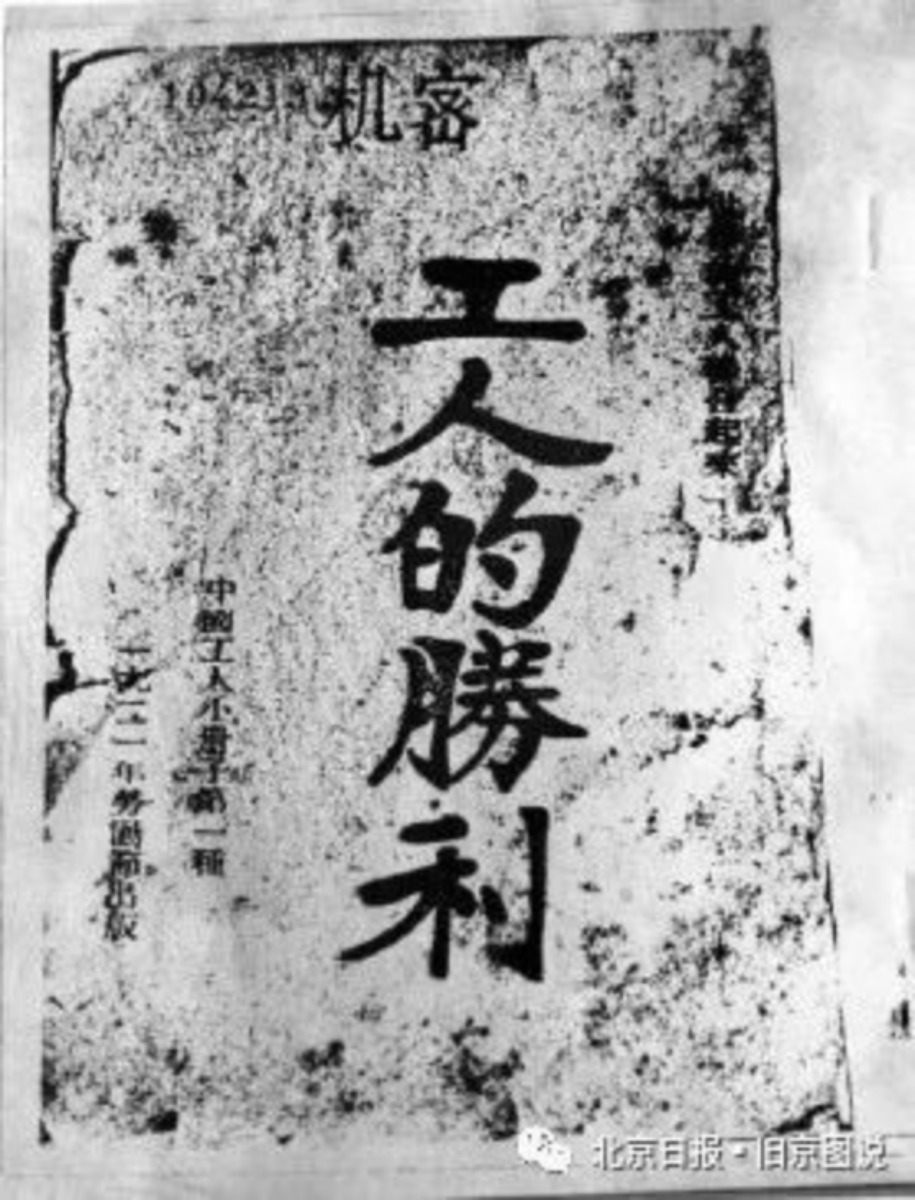 机密
工人的勝利
中國工人小冊子第一種
一九二一年勞働節出版
北京日报·旧京图说